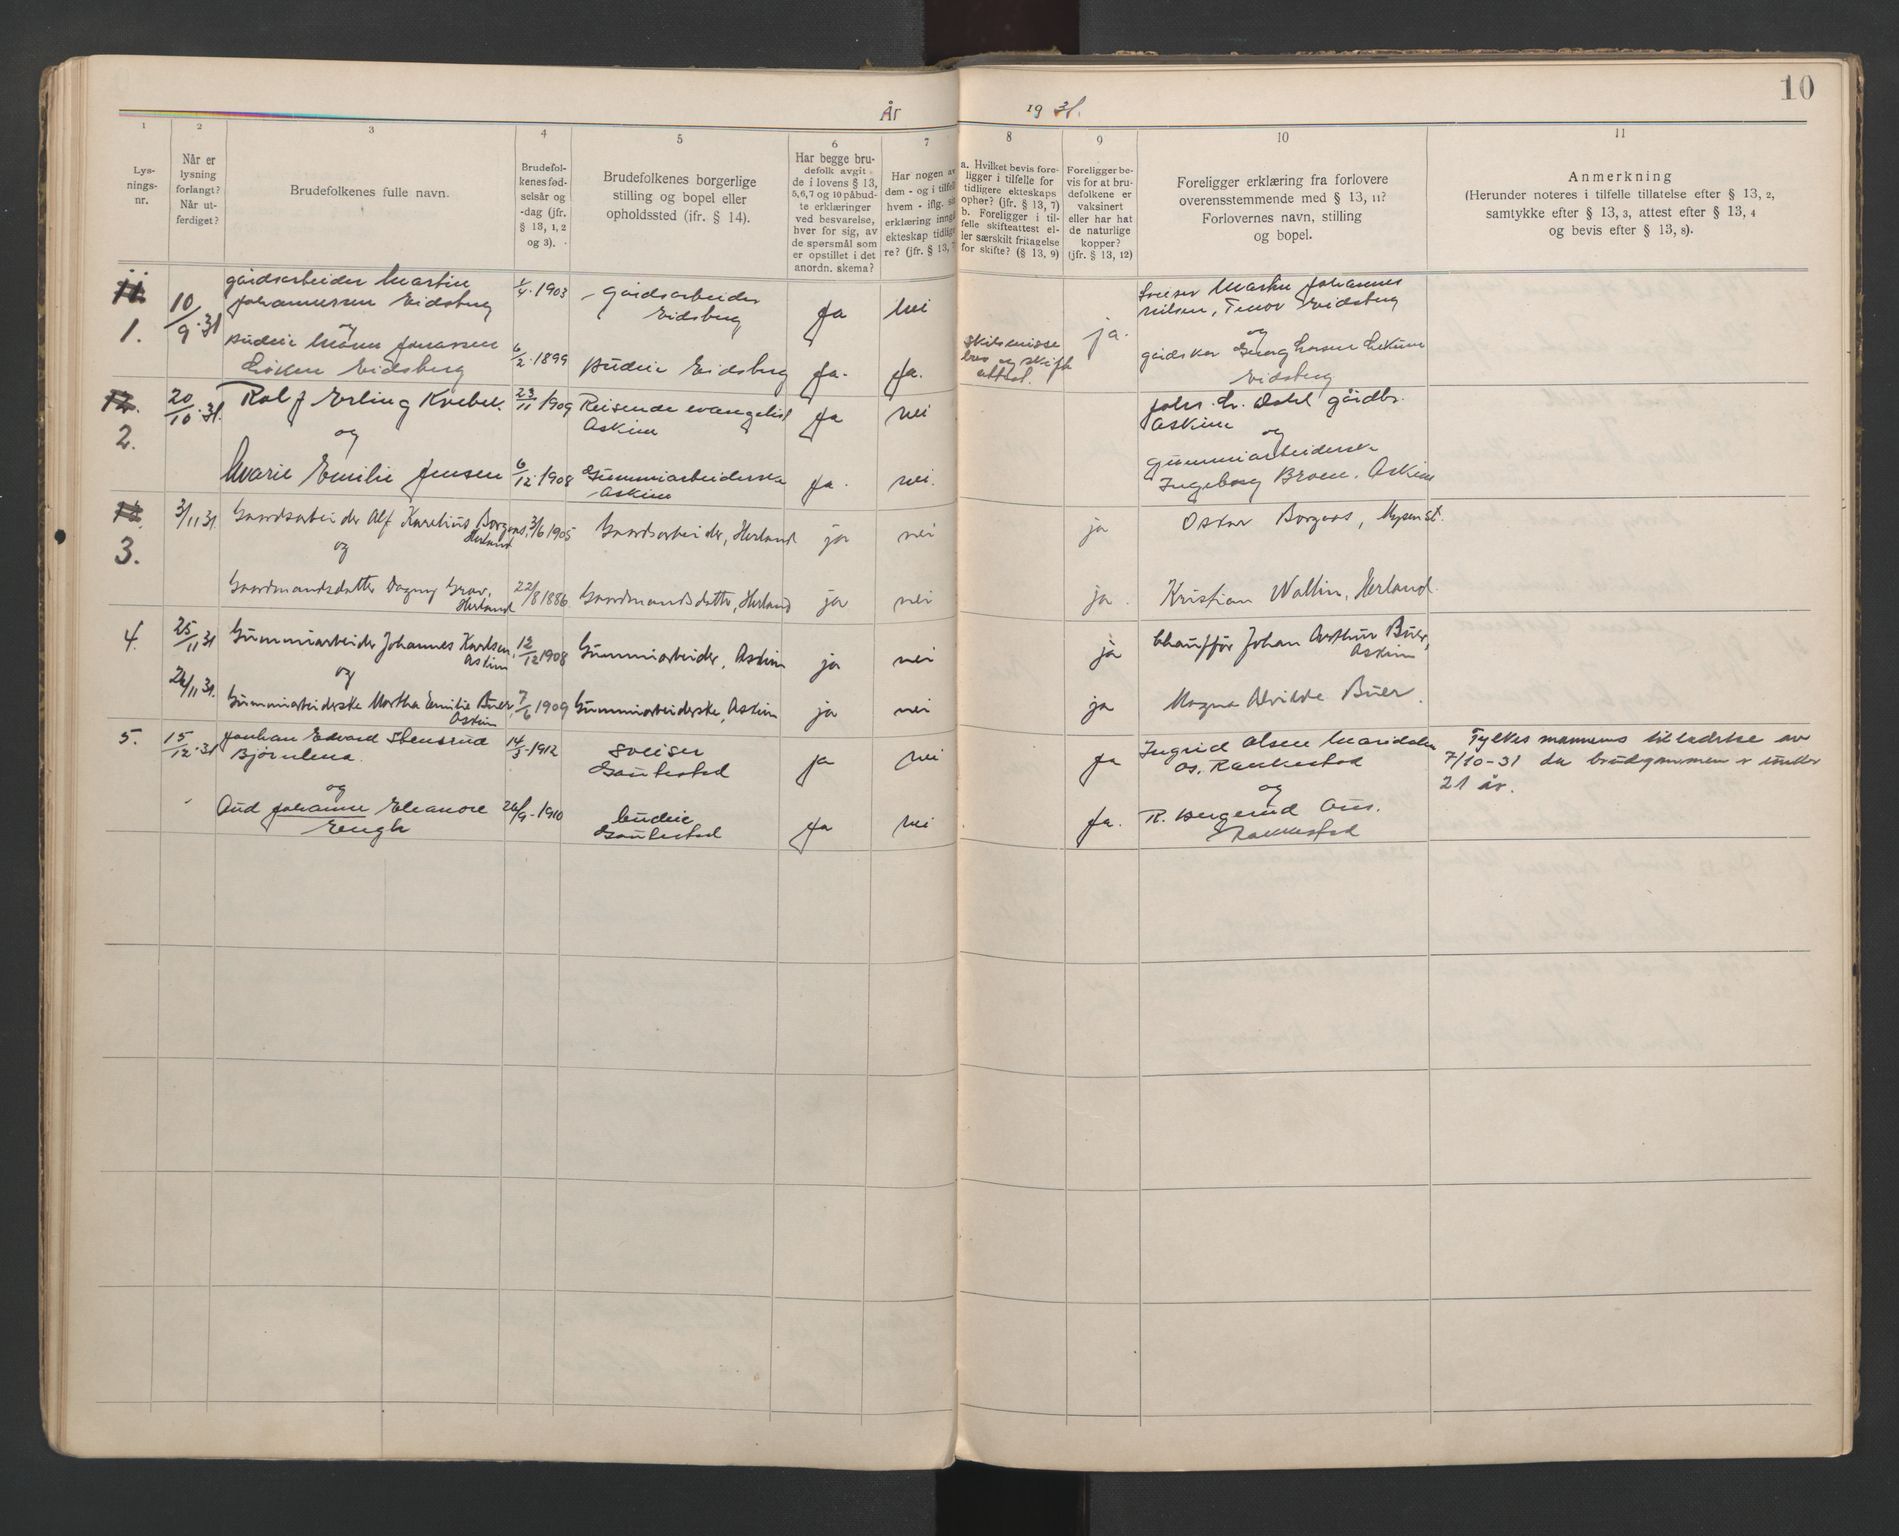 10
År 1931.
1 2 3 4 5 6 7 8 9 10 11
Lys-
nings-
nr.
Når er
lysning
forlangt?
Når ut-
ferdiget?
Brudefolkenes fulle navn.
Brudefol-
kenes fød-
selsår og
-dag (jfr.
§ 13, 1, 2
og 3).
Brudefolkenes borgerlige
stilling og bopel eller
opholdssted (ifr. § 14).
Har begge bru-
defolk avgit
de i lovens § 13,
5,6,7 og 10 påbud-
te erklæringer
ved besvarelse,
hver for sig, av
de spørsmål som
er opstillet i det
anordn. skema?
Har nogen av
dem - og i tilfelle
hvem - iflg. sin
erklæring inngått
ekteskap tidlige-
re? (jfr. § 13, 7
a. Hvilket bevis fore-
ligger i tilfelle for
tidligere ekteskaps
ophør? (jfr. § 13, 7)
b. Foreligger i til-
felle skifteattest el-
ler særskilt fritagelse
for skifte? (§ 13, 9)
Foreligger be-
vis for at bru-
defolkene er
vaksinert
eller har hat
de naturlige
kopper?
(jfr. § 13, 12)
Foreligger erklæring fra forlovere
overensstemmende med § 13, 11?
Forlovernes navn, stilling
og bopel.
Anmerkning
(Herunder noteres i tilfelle tillatelse efter § 13, 2,
samtykke efter § 13, 3, attest efter § 13, 4
og bevis efter § 13, 8).
11.
1.
10/9.31
gårdsarbeider Martin
Johannessen Eidsberg
og
budeie
Eidsberg
1/4.1903
6/2.1899
gårdsarbeider
Eidsberg
budeie Eidsberg
ja
ja.
nei
ja.
Skilsmisse
brev og skifte
attest.
ja.
Sveiser Martin Johannes
Nilsen, Eidsberg
og
gårdskar Georg Larsen
Eidsberg
12.
2.
20/10.31.
Rolf Erling Kvebek.
og
Marie Emilie Jensen
23/11 1909
6/12.1908
Reisende evangelist
Askim
Gummiarbeiderske
Askim
ja
ja.
nei
nei.
Johs. Dahl gårdbr.
Askim
og
gummiarbeiderske
Ingeborg Broen, Askim
3.
3/11 31.
Gaardsarbeider Alf Karelius Borgaas,
Herland
og
Gaardmandsdatter Dagny Grav,
Herland
3/6 1905
22/8 1886
Gaardsarbeider, Herland
Gaardmandsdatter, Herland
ja
ja
nei
nei
ja
ja.
Oskar Borgaas, Mysen st.
Kristian Wallin, Herland.
4.
25/11 31
26/11 31.
Gummiarbeider Johannes Karlsen,
Askim
og
Gummiarbeiderske Martha Emilie Buer,
Askim
12/12 1908
7/6 1909
Gummiarbeider, Askim
Gummiarbeiderske, Askim
ja
ja
nei
nei
ja
ja
Chauffør Johan Arthur Buer,
Askim
Magna Alvilde Buer.
5.
15/12.31
Edvard Stensrud
Bjørnlena.
og
Aud Johanne Eleanore
Engh
14/3.1912
26/9-1910
sveiser
Gautestad
budeie
Gautestad
ja
ja
nei
nei
ja
ja.
Ingrid Olsen
og
R. Bergerud
Fylkesmannens tilladelse av
7/10-31 da brudgommen er under
21 år.